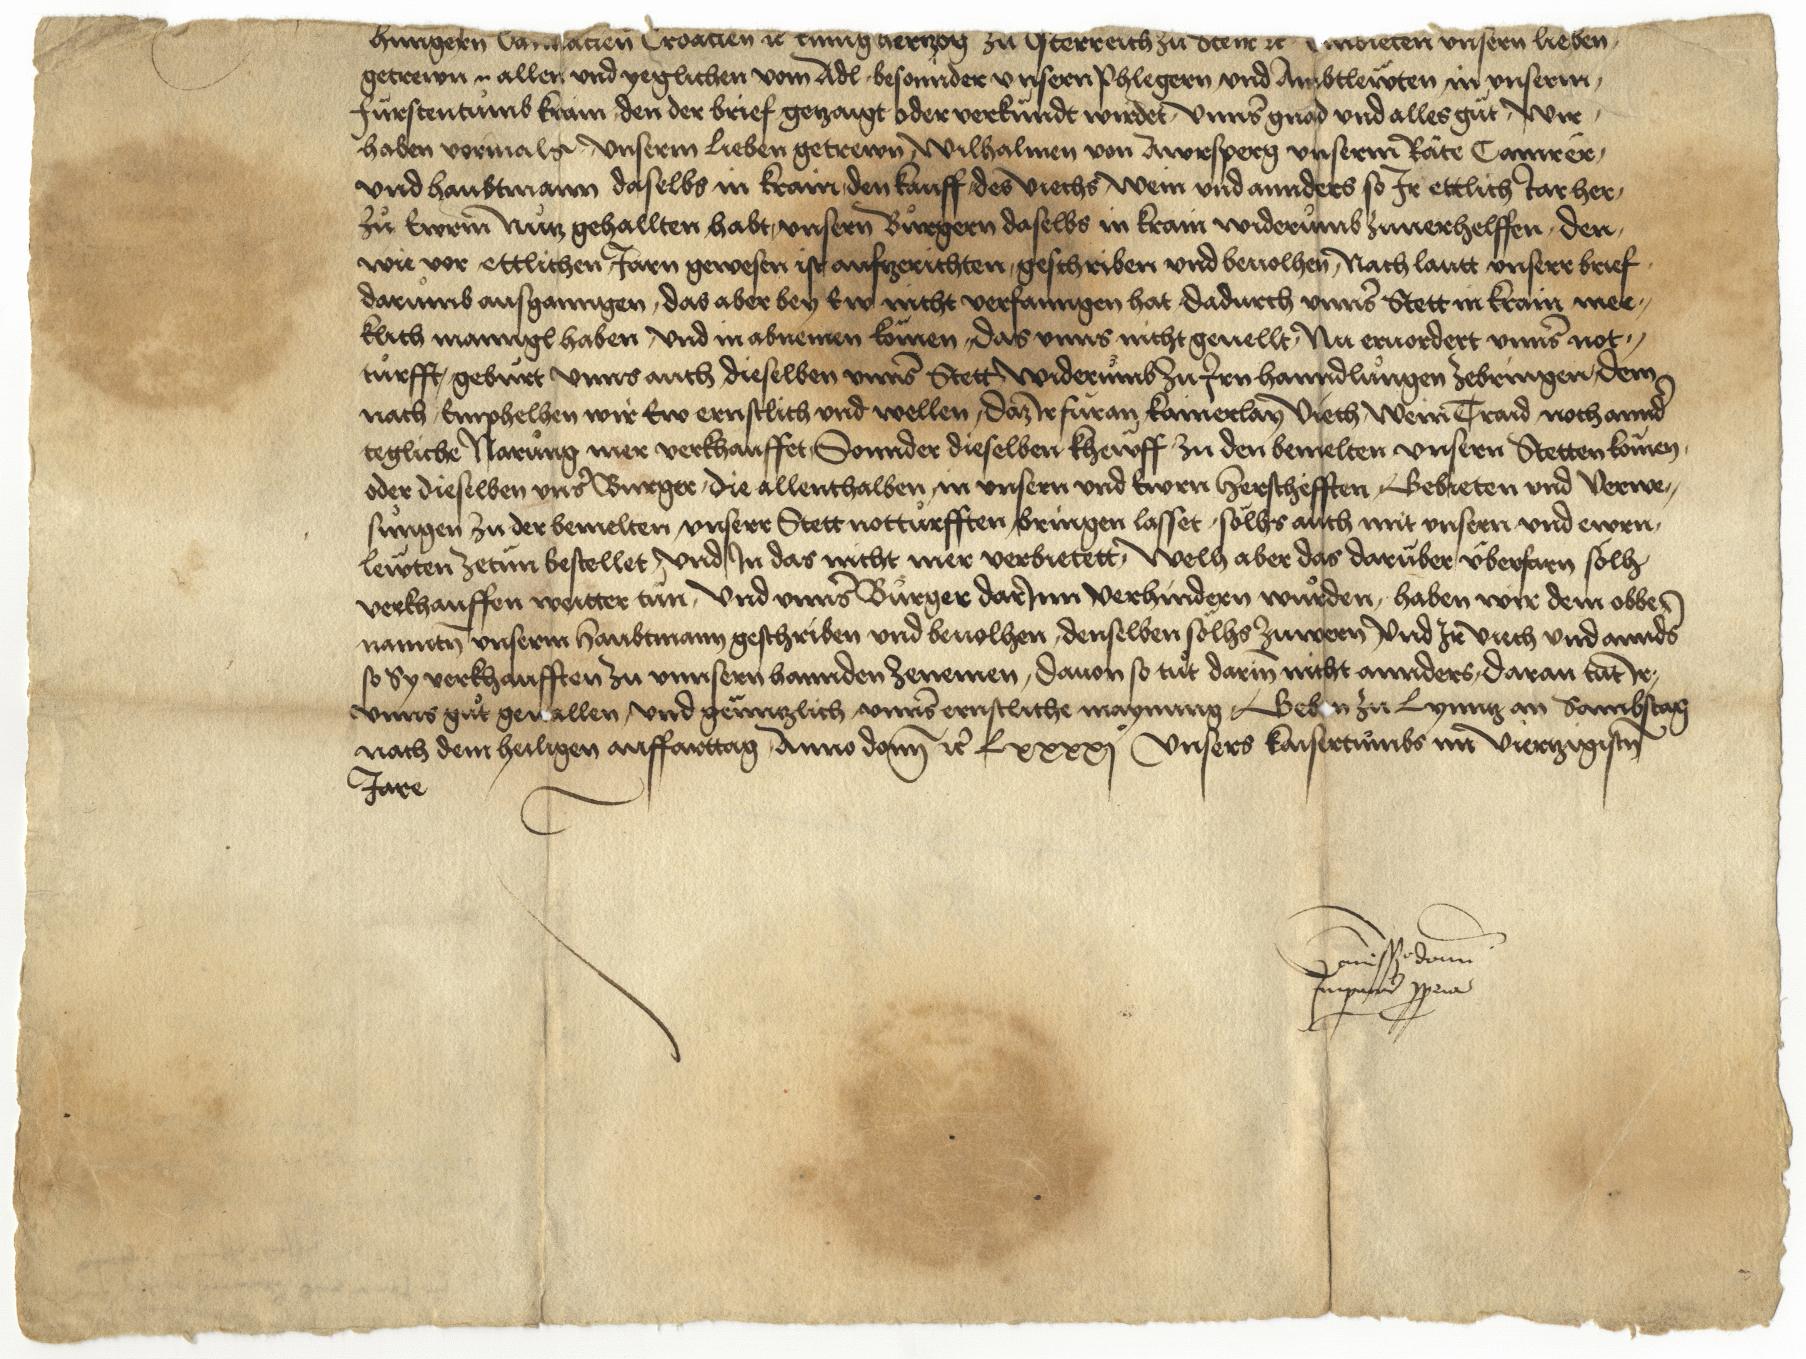 Hungern Dalmatien Croatien ꝛc kunig hertzog zu Österreich zu Steir ꝛc Embieten vnsern lieben
getrewn n allen vnd yeglichen vom Adl besonnder vnsern Phlegern vnd Ambtlewten in vnserm
Fürstentůmb Krain den der brief getzaigt oder verkündt wirdet Vnns̄ gnad vnd alles gůt Wir
haben vormals Vnserm lieben getrewn Wilhalmen von Awrsperg vnserm̄ Räte Camrer
vnd haubtmann daselbs in Krain den kauff des Viechs Wein vnd annders so Ir ettlich Jar her
zů Ewrm̄ Nůtz gehallten habt vnsern Bůrgern daselbs in Krain widerůmb zuuerhelffen Den
wie vor ettlichen Jarn gewesen ist aufzerichten geschriben vnd beuolhen̄ Nach lautt vnserr brief
darůmb ausganngen das aber bey Ew nicht verfanngen hat dadurch vnns̄ Stett in Krain mer
klich manngl haben Vnd in abnemen komen das vnns nicht geuellt Nu eruordert vnns̄ not
türfft gebürt Vnns auch dieselben vnns̄ Stett Widerůmb zu Irn hanndlůngen zebringen Dem
nach Emphelhen wir Ew ernstlich vnd wellen daz Ir füran kainerlay Viech Wein Traid noch annd̄
tegliche Narůng mer verkhauffet Sonnder dieselben khewff zu den bemelten vnsern Stetten komen
oder dieselben vns̄ Burger die allenthalben in vnsern vnd Ewrn Herschefften Gebieten vnd Verwe
sůngen zu der bemelten vnserr Stett nottůrfften bringen lasset sölhs auch mit vnsern vnd ewrn
lewten zetůn bestellet Vnd In das nicht mer verbietett Welh aber das darüber überfarn sölh
verkhauffen weitter tůn Vnd vnns̄ Bůrger darInn Verhindern wůrden haben wir dem obbe
nanntn̄ vnserm Haubtmann geschriben vnd beuolhen denselben sölhs zuwern Vnd Ir Viech vnd annds̄
so Sy verkhaufften zu vnnsern hannden zenemen dauon so tůt darin̄ nicht annders daran tůt Ir
Vnns gůt geuallen Vnd genntzlich vnns̄ ernstliche maynung Geben zu Lynntz an Sambstag
nach dem heiligen auffarttag Anno domī ꝛc̄ Lxxxxj Vnsers kaisertůmbs im Viertzigistn̄
Jare
domī
Imperatoris